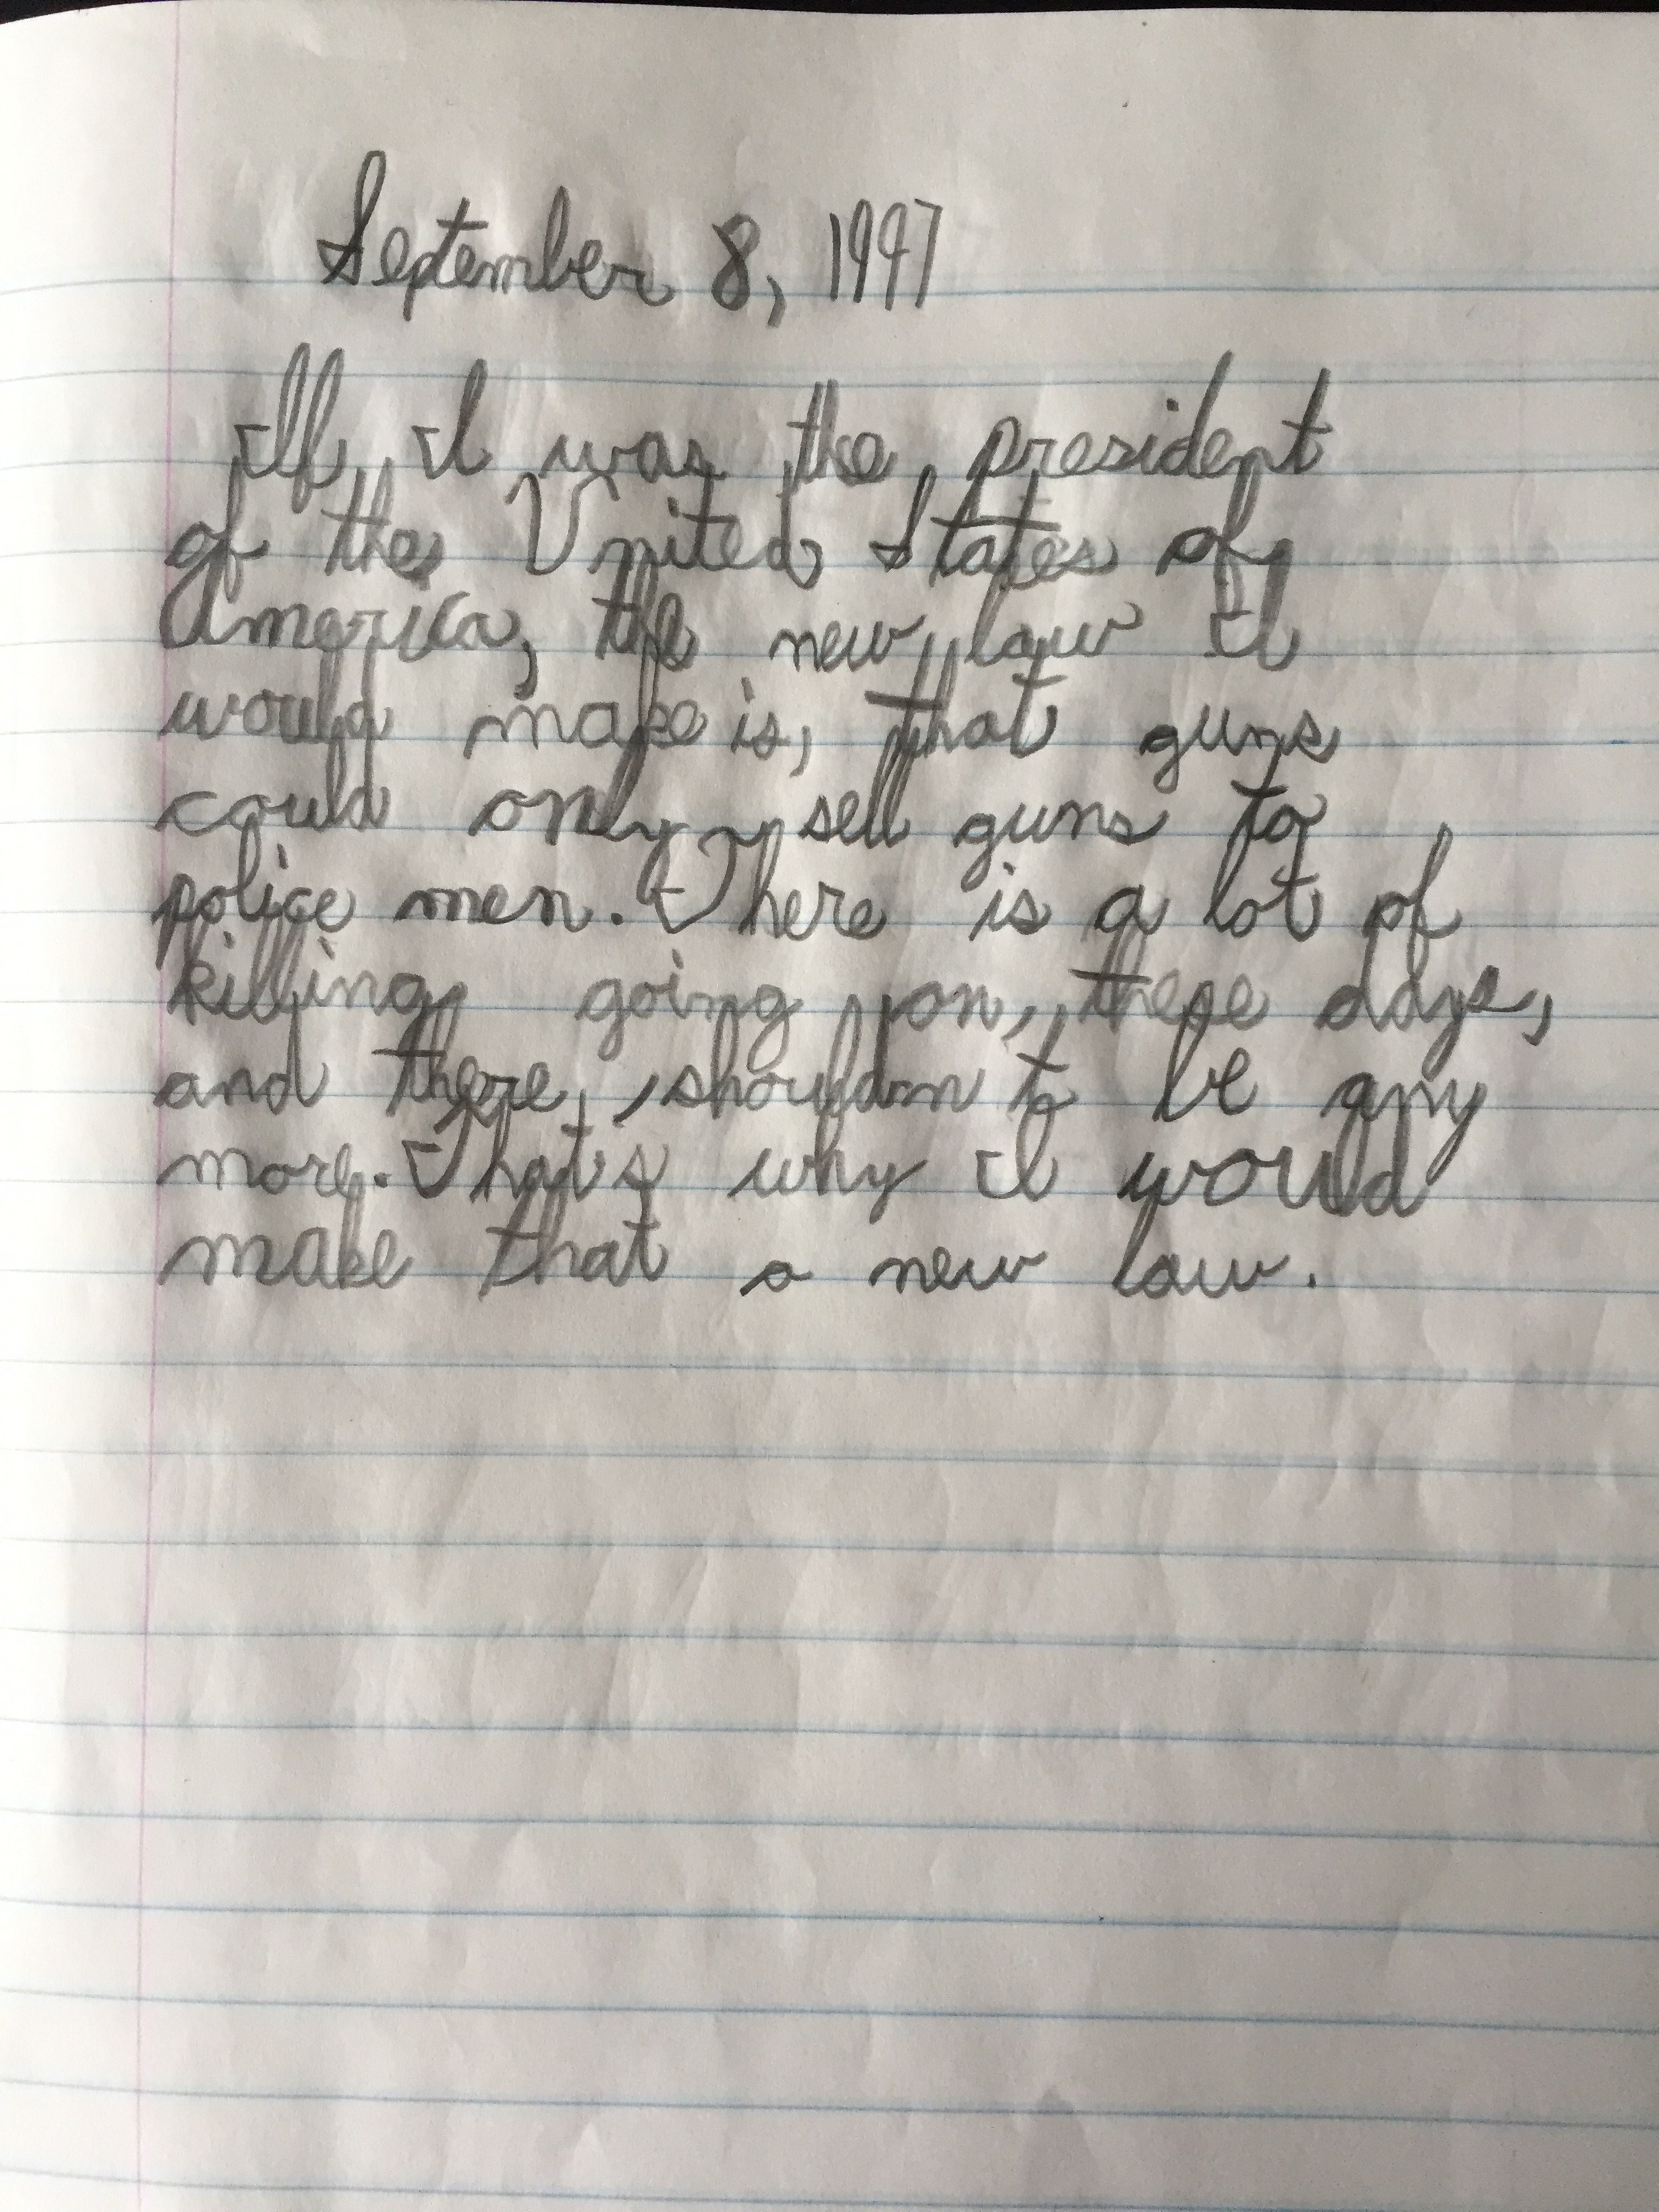 September 8, 1997
If I was the president
of the United States of
America, the new law I
would make is, that guns
could only sell guns to
police men. There is a lot of
killing going on, these days,
and there, shouldn't be any
more. That's why I would
make that a new law.